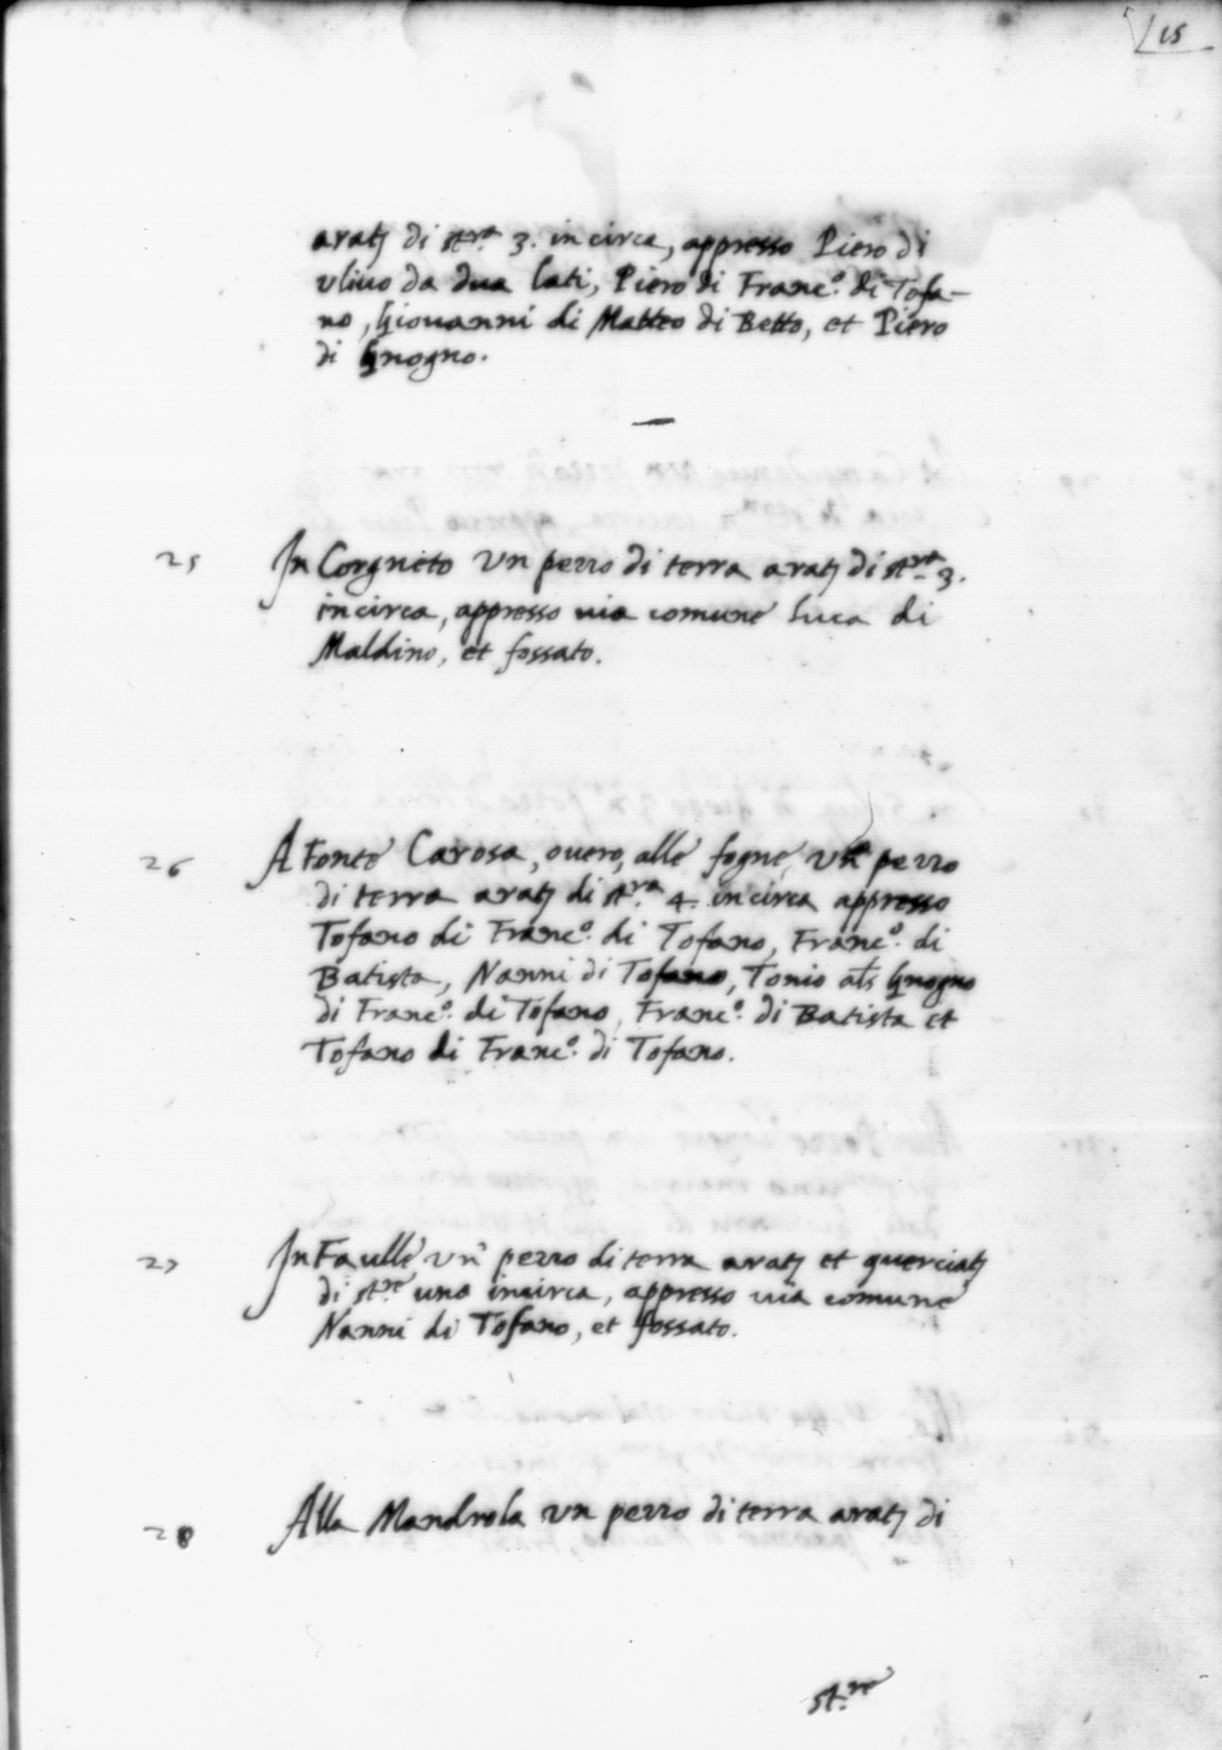 15
arat; di st.ra 3. incirca, appresso Piero di
uliuo da dua lati, Piero di Franc.o di Tofa-
no, Giouanni di Matteo di Betto, et Piero
di Gnogno.
25 In Corgneto un pezzo di terra arat; di st.ra 3.
incirca, appresso uia comune Luca di
Maldino, et fossato.
26 A Fonte Carosa, ouero, alle fogne, un pezzo
di terra arat; di st.ra 4. incirca appresso
Tofano di Franc.o di Tofano, Franc.o di
Batista, Nanni di Tofano, Tonio als Gnogno
di Franc.o di Tofano, Franc.o di Batista et
Tofano di Franc.o di Tofano.
27 In Faulle, un pezzo di terra arat; et querciat;
di st.re una incirca, appresso uia comune
Nanni di Tofano, et fossato.
28 Alla Mandrola un pezzo di terra arat; di
st.re